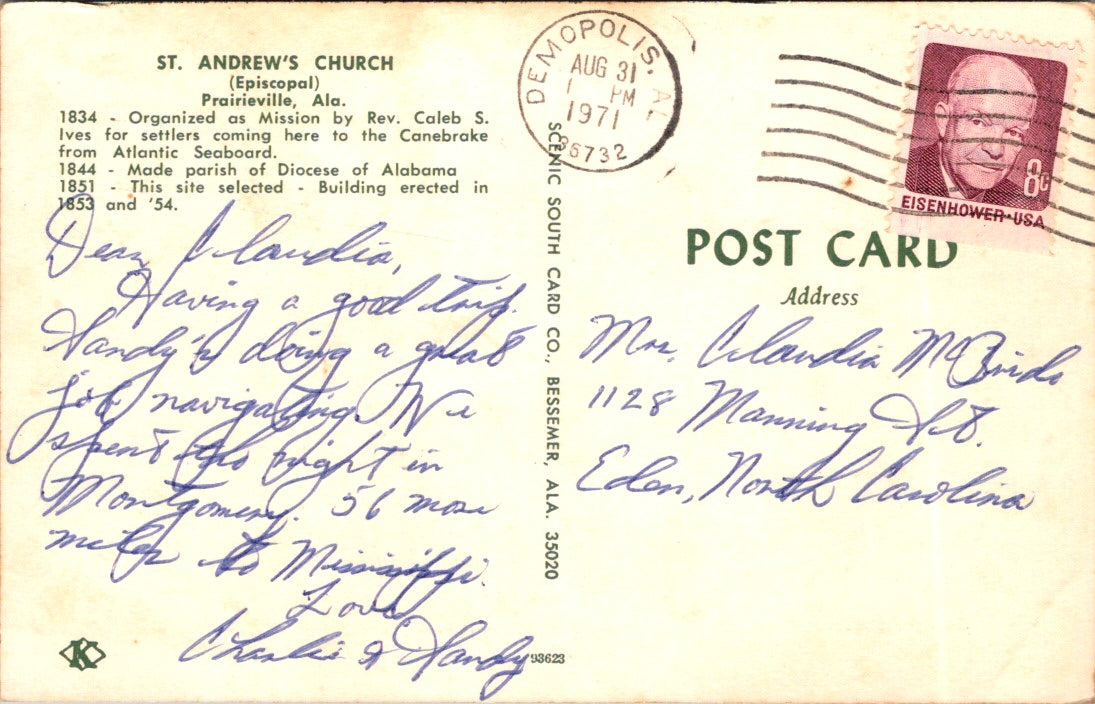 ST. ANDREW'S CHURCH
(Episcopal)
Prairieville, Ala.
1834 - Organized as Mission by Rev. Caleb S.
Ives for settlers coming here to the Canebrake
from Atlantic Seaboard.
1844 - Made parish of Diocese of Alabama
1851 - This site selected - Building erected in
1853 and '54.
Dear Claudia,
Having a good trip.
Handy's doing a great
job navigating. We
spent the night in
Montgomery. 56 more
miles to Mississippi.
Love
Charlie & Handy
K
93623
SCENIC SOUTH CARD CO., BESSEMER, ALA. 35020
DEMOPOLIS. AL
AUG 31
1 PM
1971
36732
8c
EISENHOWER·USA
POST CARD
Address
Mrs. Claudia McBride
1128 Manning St.
Eden, North Carolina